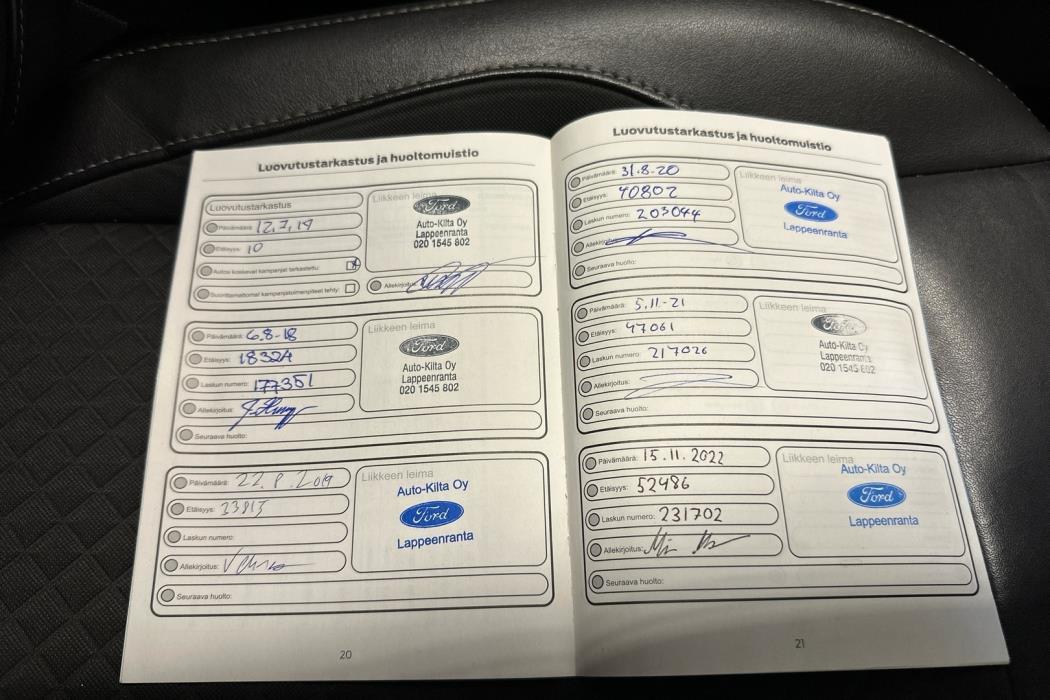 Luovutustarkastus ja huoltomuistio
Luovutustarkastus
Päivämäärä:
Etäisyys: 10
Autoa koskevat kampanjat tarkastettu:
Suorittamattomat kampanjatoimenpiteet tehty:
Liikkeen leima
Ford
Auto-Kilta Oy
Lappeenranta
020 1545 802
Allekirjoitus:
Päivämäärä: 6.8-18
Etäisyys: 18324
Laskun numero: 177351
Allekirjoitus:
Seuraava huolto:
Liikkeen leima
Ford
Auto-Kilta Oy
Lappeenranta
020 1545 802
Päivämäärä: 22.8.2019
Etäisyys:
Laskun numero:
Allekirjoitus:
Seuraava huolto:
Liikkeen leima
Auto-Kilta Oy
Ford
Lappeenranta
20
Luovutustarkastus ja huoltomuistio
Päivämäärä: 31.8-20
Etäisyys: 40802
Laskun numero: 203044
Allekirjoitus:
Seuraava huolto:
Liikkeen leima
Auto-Kilta Oy
Ford
Lappeenranta
Päivämäärä: 5.11-21
Etäisyys: 47061
Laskun numero: 217026
Allekirjoitus:
Seuraava huolto:
Liikkeen leima
Ford
Auto-Kilta Oy
Lappeenranta
020 1545 802
Päivämäärä: 15.11.2022
Etäisyys: 52486
Laskun numero: 231702
Allekirjoitus:
Seuraava huolto:
Liikkeen leima
Auto-Kilta Oy
Ford
Lappeenranta
21